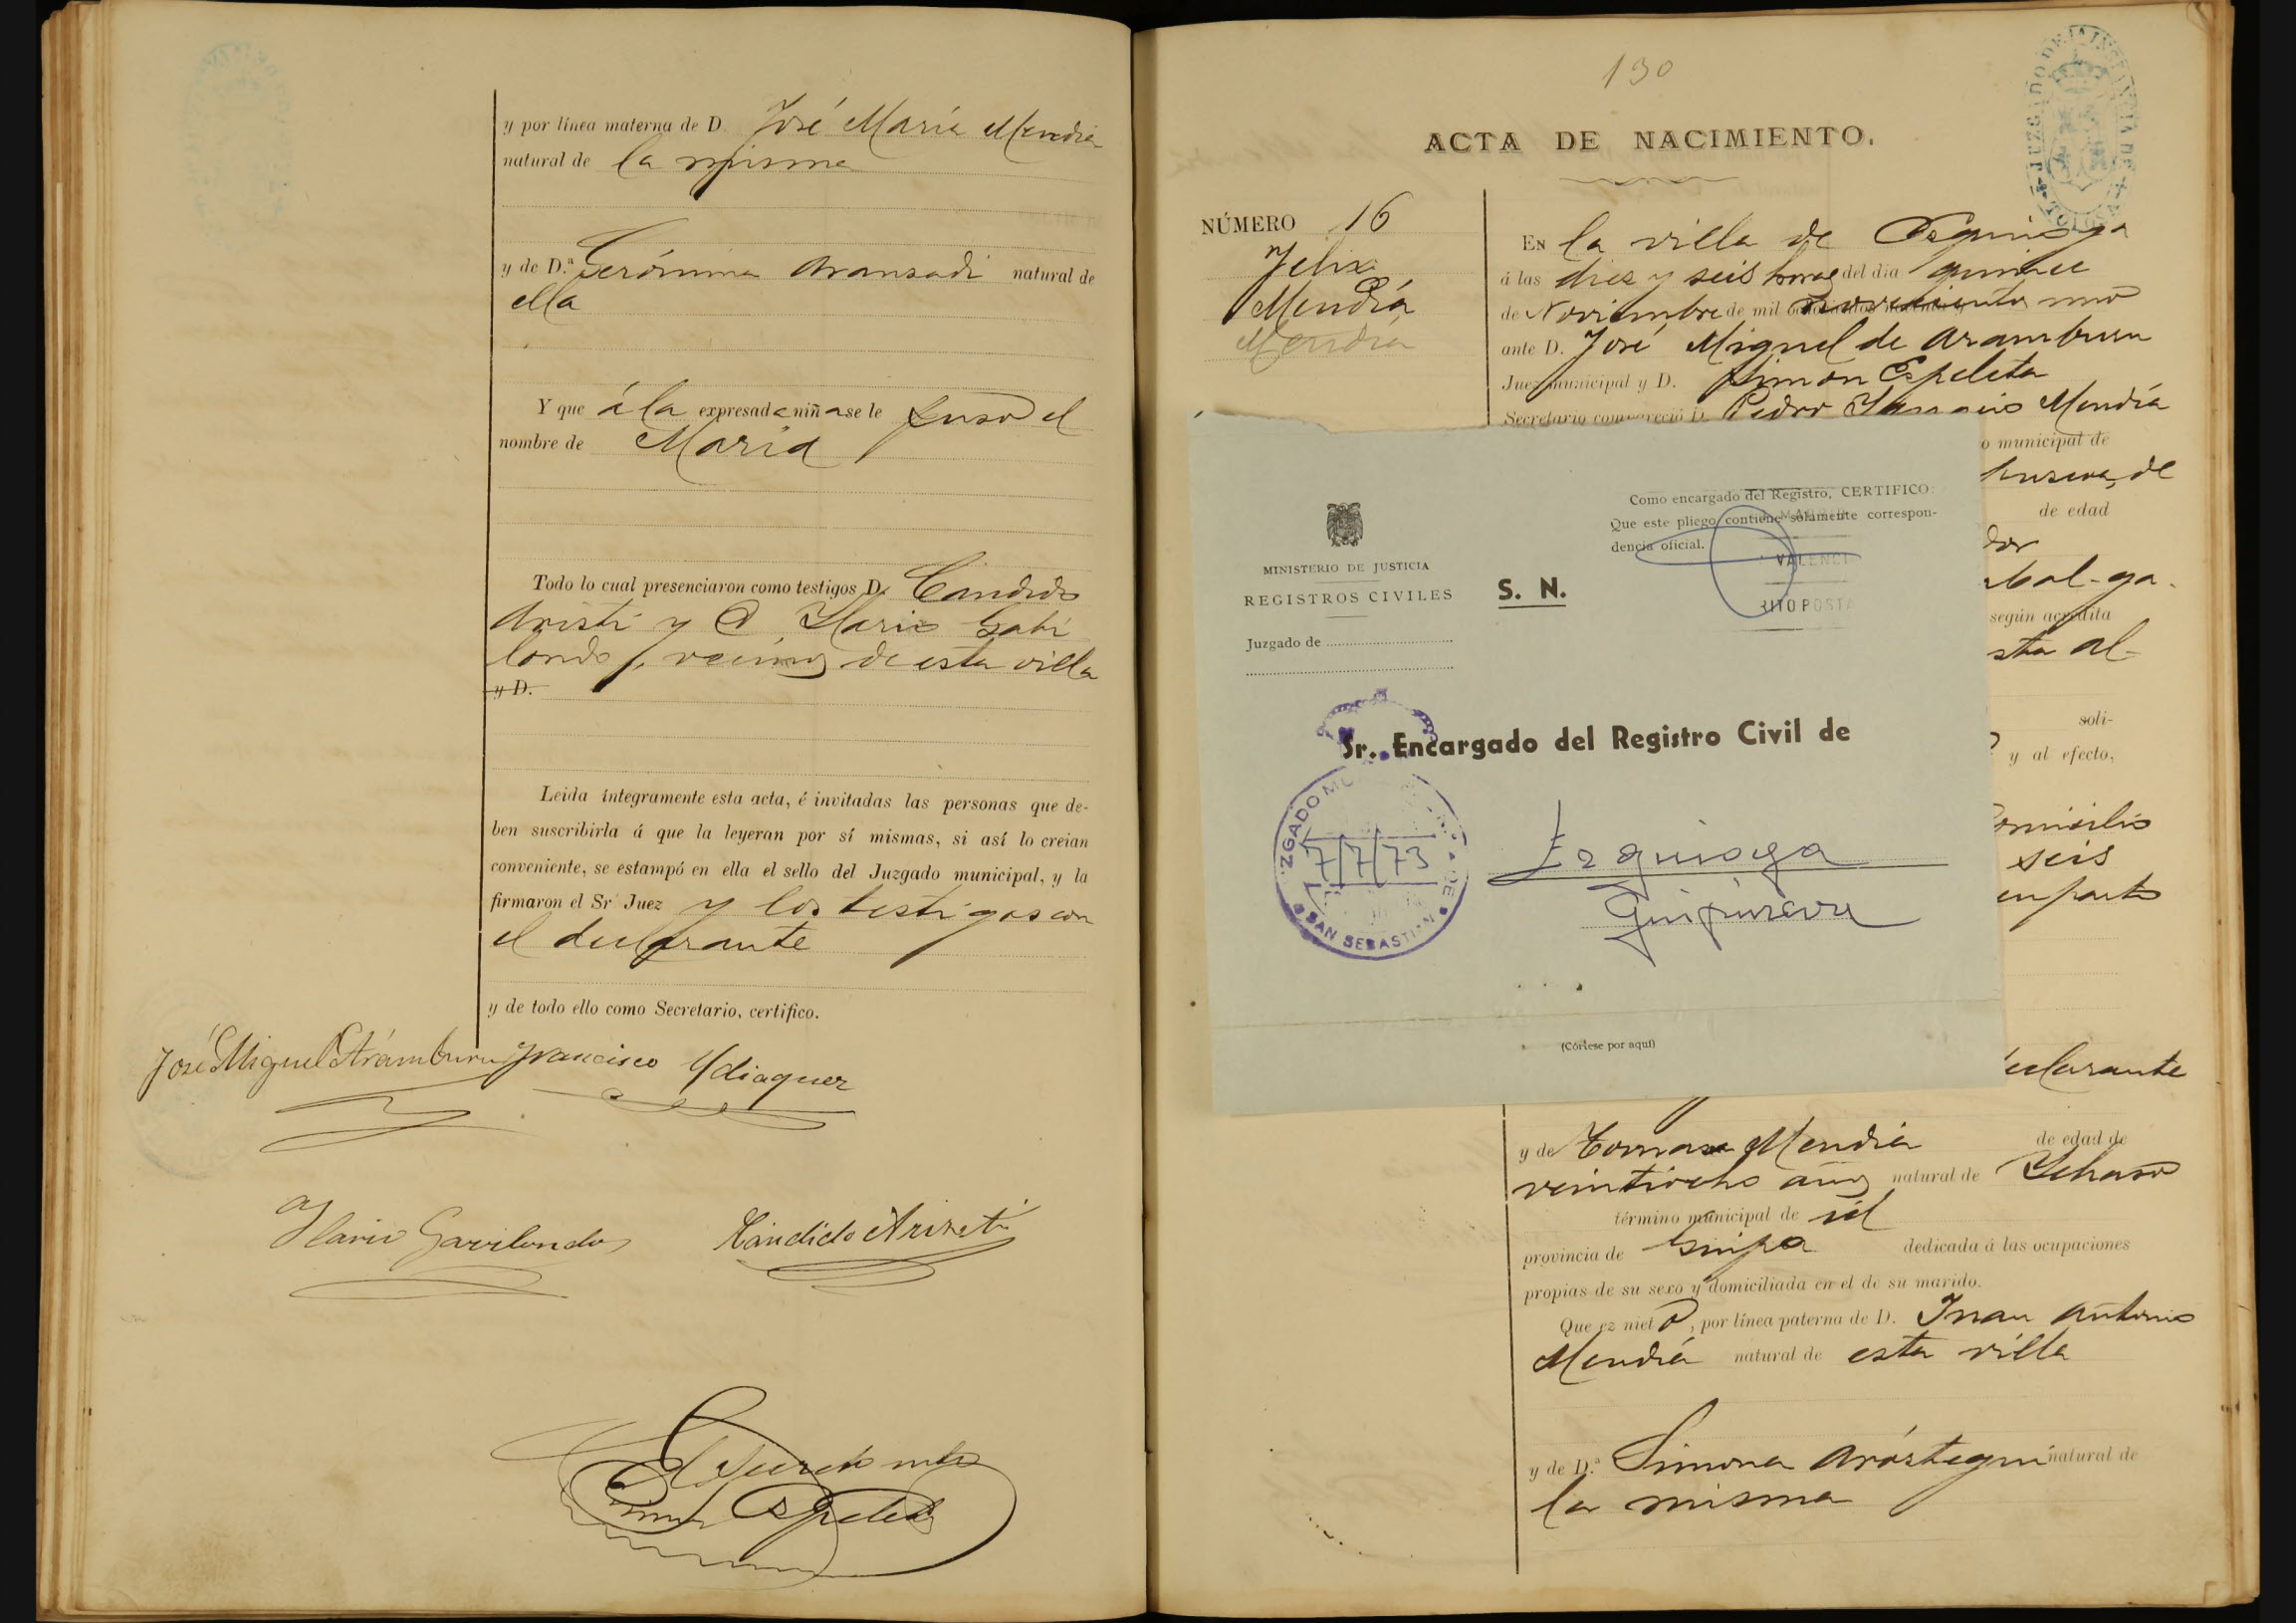 y por línea materna de D. José María Mendia
natural de la misma
y de D.ª Gerónima Aranzadi natural de
ella
Y que á la expresada niña se le puso el
nombre de María
Todo lo cual presenciaron como testigos D. Candido
Aristi y D. Ilario Gabi
londo, vecinos de esta villa
y D.
Leida íntegramente esta acta, é invitadas las personas que de-
ben suscribirla á que la leyeran por sí mismas, si así lo creian
conveniente, se estampó en ella el sello del Juzgado municipal, y la
firmaron el Sr Juez y los testigos con
el declarante
y de todo ello como Secretario, certifico.
José Miguel Arámburu Francisco Ydiaquez
Ilario Gavilondo Candido Arizeti
El Secreto
Espeleta
130
JUZGADO DE 1ª INSTANCIA DE TOLOSA
ACTA DE NACIMIENTO.
NÚMERO 16
Felix
Mendía
Mendía
EN la villa de Ezquioga
á las diez y seis horas del dia quince
de Noviembre de mil novecientos uno
ante D. José Miguel de Aramburu
Juez municipal y D. Simon Espeleta
Secretario compareció D. Pedro Ignacio Mendía
o municipal de
de
de edad
dor
según acredita
sta al-
soli-
y al efecto,
domicilio
seis
en parto
MINISTERIO DE JUSTICIA
REGISTROS CIVILES
Juzgado de
S. N.
Como encargado del Registro, CERTIFICO:
Que este pliego contiene solamente correspon-
dencia oficial.
VALENCI
RITO POSTA
Sr. Encargado del Registro Civil de
ZGADO MU
DE
SAN SEBASTIAN
7/7/73
Ezquioga
Guipúzcoa
(Córtese por aquí)
declarante
y de Tomasa Mendia de edad de
veintiocho años natural de Ichaso
término municipal de id
provincia de Guipa dedicada á las ocupaciones
propias de su sexo y domiciliada en el de su marido.
Que ez nieto, por línea paterna de D. Juan Antonio
Mendiá natural de esta villa
y de D.ª Simona Aróstegui natural de
la misma